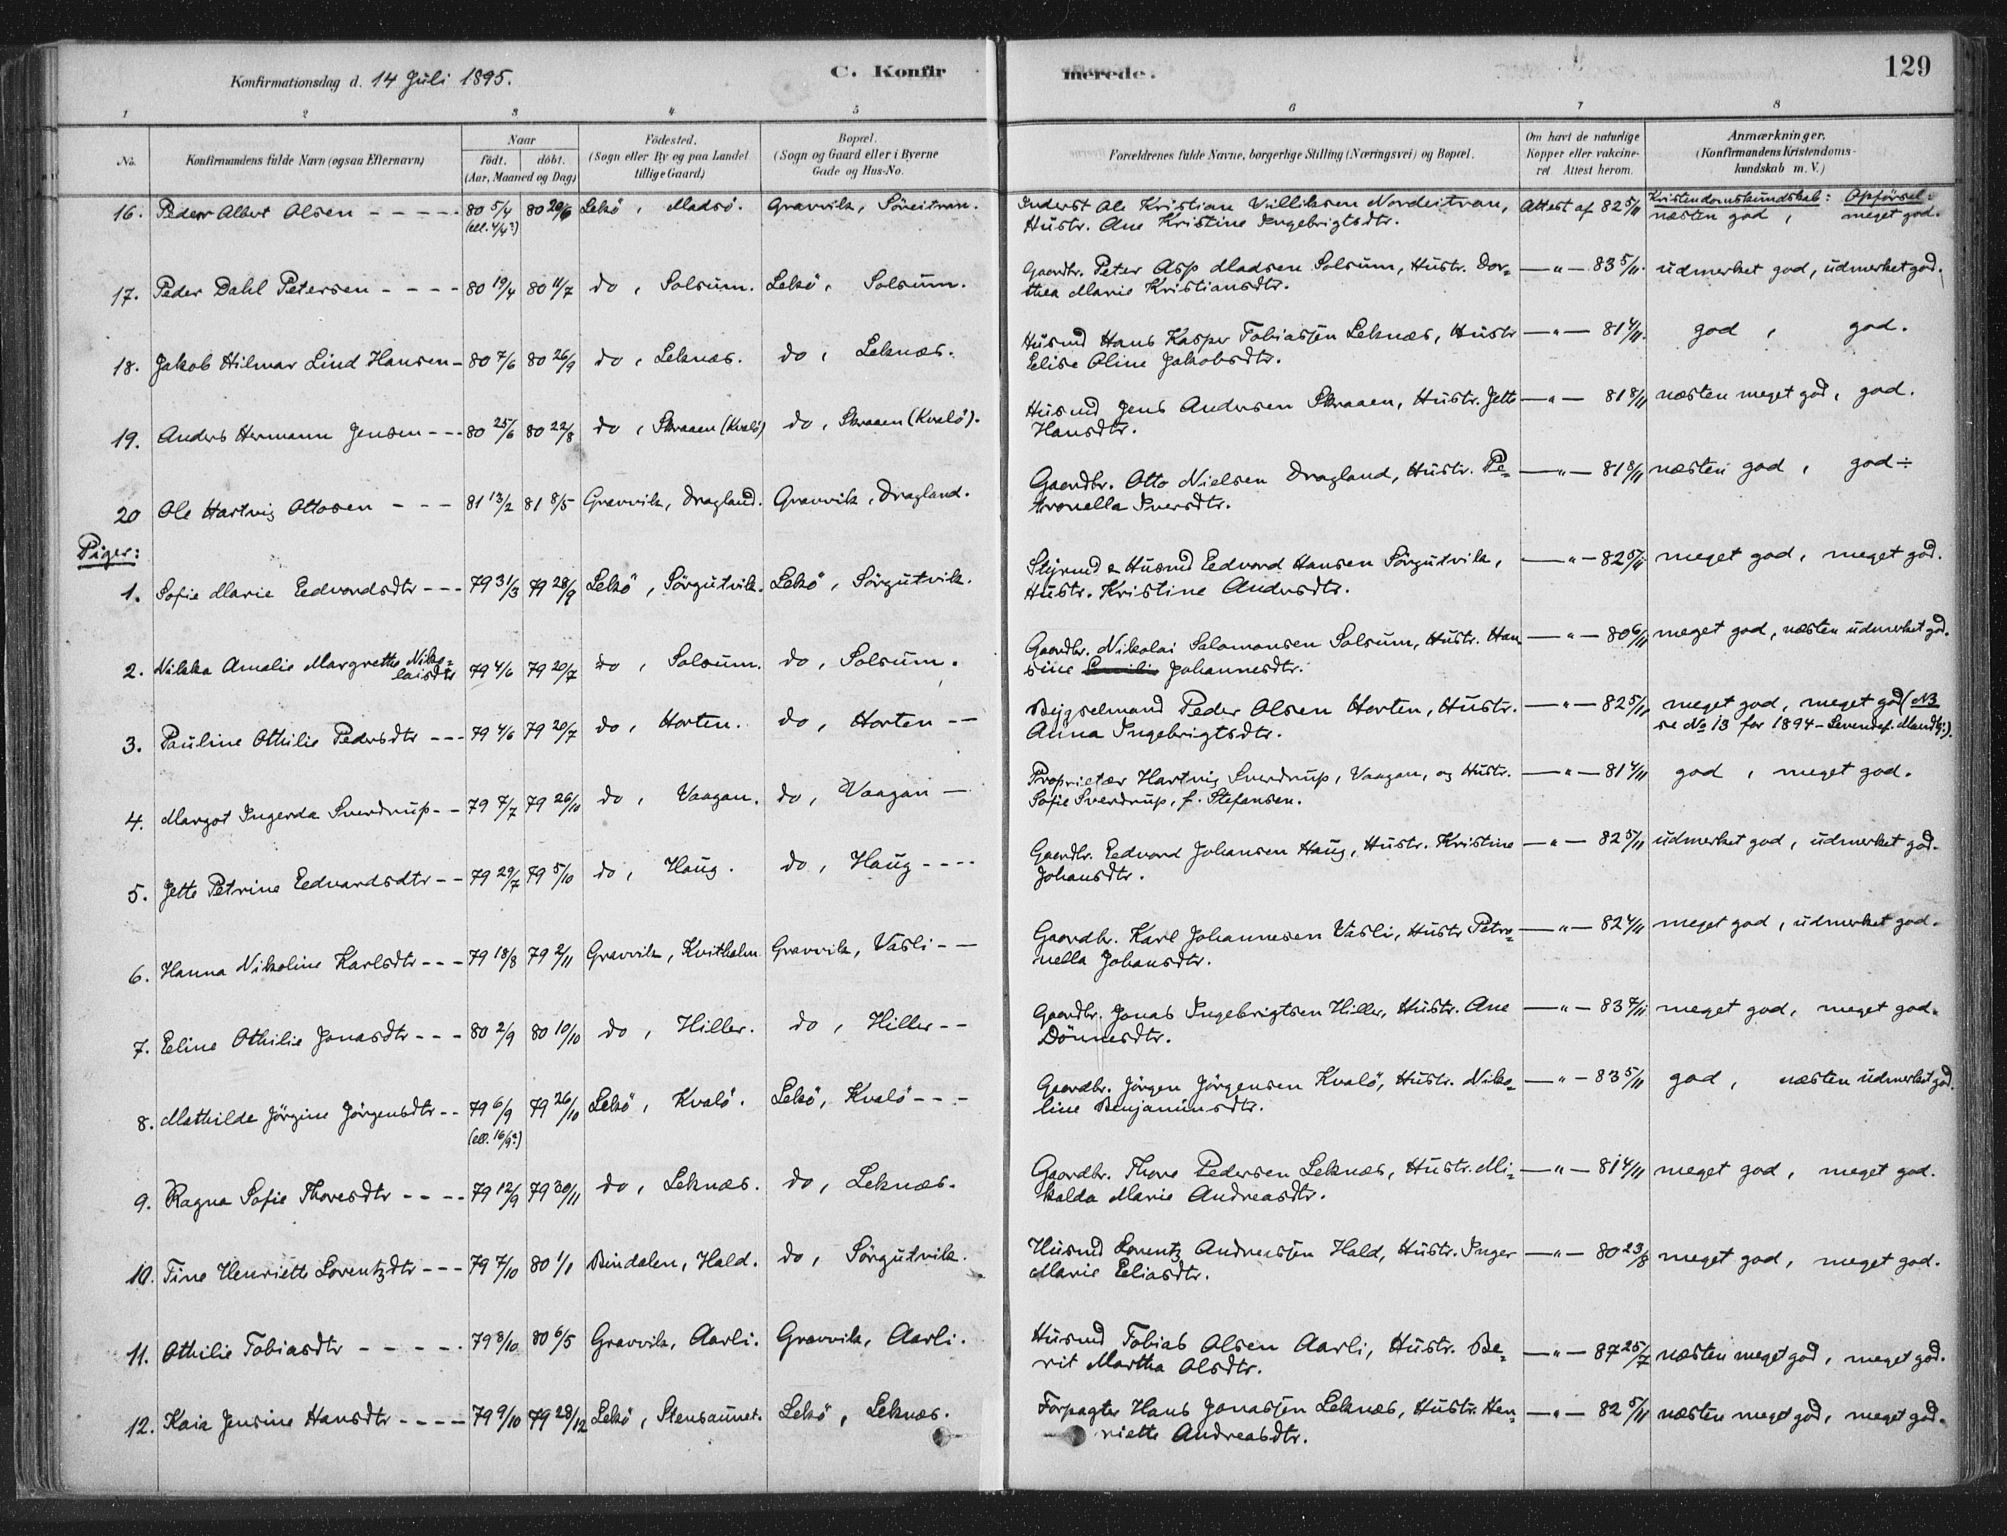 Konfirmationsdag d. 14 Juli 1895.
C. Konfir
merede.
129
1 2 3 4 5 6 7 8
No.
Konfirmandens fulde Navn (ogsaa Efternavn)
Naar
født. døbt.
(Aar, Maaned og Dag)
Fødested.
(Sogn eller By og paa Landet
tillige Gaard)
Bopæl.
(Sogn og Gaard eller i Byerne
Gade og Hus-No.
Forældrenes fulde Navne, borgerlige Stilling (Næringsvei) og Bopæl.
Om havt de naturlige
Kopper eller vakcine-
ret. Attest herom.
Anmærkninger.
(Konfirmandens Kristendoms-
kundskab m. V.)
Kristendomskundskab: Opførsel:
16. Peder Albert Olsen - - - - - 80 5/4 80 20/6 Lekö, Madsö. Gravvik, Söreitran. Inderst Ole Kristian Villiksen Nordeitran, Attest af 82 5/11 næsten god, meget god.
(ell. 4/4?) Hustr. Ane Kristine Ingebrigtsdtr.
17. Peder Dahl Petersen - - - - 80 19/4 80 11/7 do, Solsum. Lekö, Solsum. Gaardbr. Peter Asp Madsen Solsum, Hustr. Dor- —"— 83 5/11. udmerket god, udmerket god.
thea Marie Kristiansdtr.
18. Jakob Hilmar Lind Hansen - 80 7/6 80 26/9 do, Leknæs. do, Leknæs. Husmd Hans Kasper Tobiassen Leknæs, Hustr —"— 81 4/11. god, god.
Elise Oline Jakobsdtr.
19. Anders Hermann Jensen - - - 80 25/6 80 22/8 do, Skraaen (Kvalö) do, Skraaen (Kvalö). Husmd Jens Andersen Skraaen, Hustr. Jette —"— 81 8/11 næsten meget god, god.
Hansdtr.
20 Ole Hartvig Ottosen - - - 81 13/2 81 8/5 Gravvik, Dragland. Gravvik, Dragland. Gaardbr. Otto Nielsen Dragland, Hustr. Pe- —"— 81 8/11 næsten god, god÷
tronella Iversdtr.
Piger:
1. Sofie Marie Eedvardsdtr - - - 79 31/3 79 28/9 Lekö, Sörgutvik. Lekö, Sörgutvik. Styrmd & Husmd Eedvard Hansen Sörgutvik, —"— 82 5/11 meget god, meget god.
Hustr. Kristine Andersdtr.
2. Nilska Amalie Margrethe Niko-
laisdtr 79 4/6 79 20/7 do, Solsum. do, Solsum. Gaardbr. Nikolai Salomonsen Solsum, Hustr. Han- —"— 80 6/11 meget god, næsten udmerket god.
sine Johannesdtr.
3. Pauline Othilie Pedersdtr - - - 79 4/6 79 20/7 do, Horten. do, Horten — Bygselmand Peder Olsen Horten, Hustr. —"— 82 5/11 meget god, meget god (NB
Anna Ingebrigtsdtr. se No 13 for 1894 -
4. Margot Ingerda Sverdrup - - 79 7/7 79 26/10 do, Vaagan. do, Vaagan — Proprietær Hartvig Sverdrup, Vaagan, og Hustr. —"— 81 4/11 god, meget god.
Sofie Sverdrup, f. Stefansen.
5. Jette Petrine Eedvardsdtr - - 79 29/7 79 5/10 do, Haug. do, Haug - - - - Gaardbr. Eedvard Johansen Haug, Hustr. Kristine —"— 82 5/11 udmerket god, udmerket god.
Johansdtr.
6. Hanna Nikoline Karlsdtr - - - 79 18/8 79 2/11 Gravvik, Kvitholm Gravvik, Vasli - - Gaardbr. Karl Johannesen Vasli, Hustr Petro- —"— 82 4/11 meget god, udmerket god.
nella Johansdtr.
7. Eeline Othilie Jonasdtr - - - 80 2/9 80 10/10 do, Hiller. do, Hiller - - Gaardbr. Jonas Ingebrigtsen Hiller, Hustr. Ane —"— 83 7/11 meget god, meget god.
Dönnesdtr.
8. Mathilde Jörgine Jörgensdtr - - 79 6/9 79 26/10 Lekö, Kvalö. Lekö, Kvalö - - - Gaardbr. Jörgen Jörgensen Kvalö, Hustr. Niko- —"— 83 5/11 god, næsten udmerket god.
(ell. 16/9?) line Benjaminsdtr.
9. Ragna Sofie Thoresdtr - - - - 79 12/9 79 30/11 do, Leknæs. do, Leknæs. Gaardbr. Thore Pedersen Leknæs, Hustr. Mi- —"— 81 4/11 meget god, meget god.
kalda Marie Andreasdtr.
10. Tine Henriette Lorentzdtr - - - 79 7/10 80 1/1 Bindalen, Hald. do, Sörgutvik. Husmd Lorentz Andreassen Hald, Hustr. Inger —"— 80 23/8 meget god, meget god.
Marie Eeliasdtr.
11. Othilie Tobiasdtr - - - - - 79 8/10 80 6/5 Gravvik, Aarli. Gravvik, Aarli. Husmd Tobias Olsen Aarli, Hustr. Be- —"— 87 25/7 næsten meget god, meget god.
rit Martha Olsdtr.
12. Kaia Jensine Hansdtr - - - - 79 9/10 79 28/12 Lekö, Stensaunet. Lekö, Leknæs. Forpagter Hans Jonassen Leknæs, Hustr. Hen- —"— 82 5/11 næsten meget god, meget god.
riette Andreasdtr.